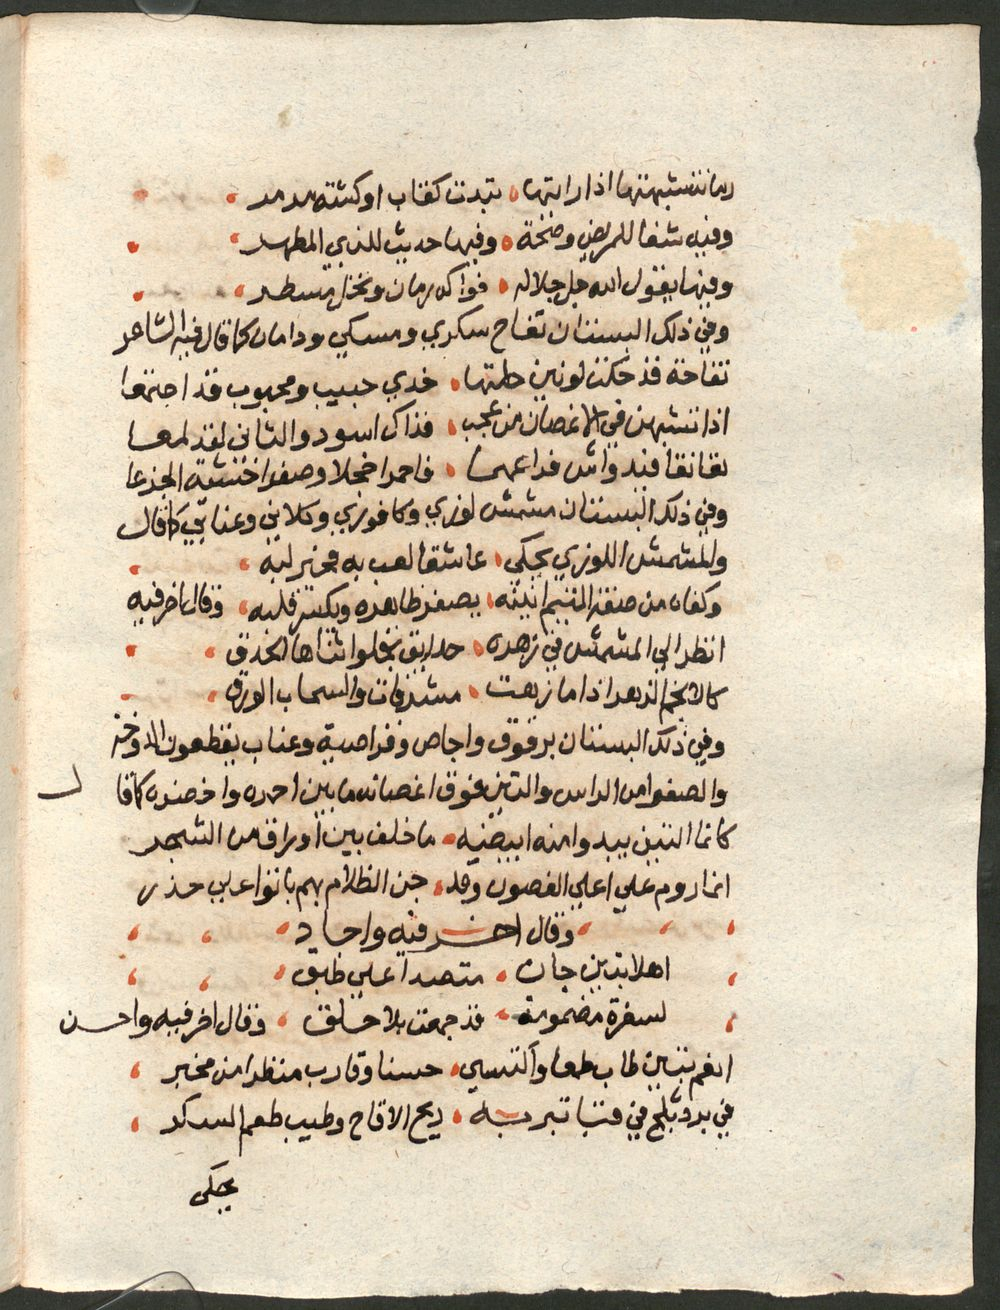 رمانتشبهتها اذا رايتها ، بتدت كقباب او كشته مرمر
وفيه شفا للمريض وصحة ، وفيها حديث للنبي المطهر
وفيها يقول الله جل جلاله ، فواكه رمان ونخل مسطر
وفي ذلك البستان تفاح سكري ومسكي ودامان كما قال فيه الشاعر
تفاحة قد حكت لونين خلتها ، خدي حبيب ومحبوب قد اجتمعا
اذا تشبهن في الاغصان من عجب ، فذاك اسود والثاني لقد لمعا
تعانقا فبد واش فراعهما ، فاحمرا خجلا وصفرا خشية الجزعا
وفي ذلك البستان مشمش لوزي وكافوري وكلابي وعنابي كما قال
والمشمش اللوزي يحكي ، عاشقا لعب به مخبر لبه
وكفاه من صفة المتيم انينه ، يصفر ظاهره ويكسر قلبه ، وقال اخر فيه
انظر الي المشمش في زهره ، حدايق يجلوا ثناها الحذق
كالانجم الزهر اذا ما زهت ، مشرقات والسحاب الورق
وفي ذلك البستان برقوق واجاص وقراصية وعناب يقطعون الدوخه
والصفرا من الراس والتين فوق اغصانه ما بين احمره واخضره كما قا
ل
كانما التين يبدوا منه ابيضه ، ما خلف بين اوراق من الشجر
ابنا روم علي اعلي القصون وقد ، جن الظلام بهم باتوا علي حذر
وقال اخر فيه واجاد
اهلا بتين جات ، متصدا علي طبق
لسفرة مضمومة ، قد جمعت بلا حلق ، وقال اخر فيه واحسن
انعم بتين طاب طعما واكتسي ، حسنا وقارب منظرا من مخبر
في برد ثلج في قبا تبر به ، ريح الاقاح وطيب طعم السكر
يحكي